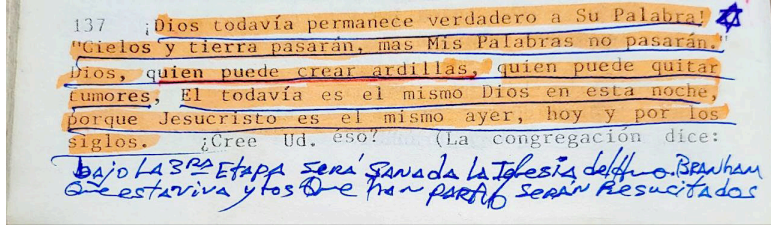 137 ¡Dios todavía permanece verdadero a Su Palabra!
"Cielos y tierra pasarán, mas Mis Palabras no pasarán."
Dios, quien puede crear ardillas, quien puede quitar
tumores, El todavía es el mismo Dios en esta noche,
porque Jesucristo es el mismo ayer, hoy y por los
siglos. ¿Cree Ud. eso? (La congregación dice:
BAJO LA 3RA EtAPA SERÁ SANADA LA IGlesiA del Hno. BRANHAM
Que estA VIVA y los Que han PARtido SERÁN ResucitAdos